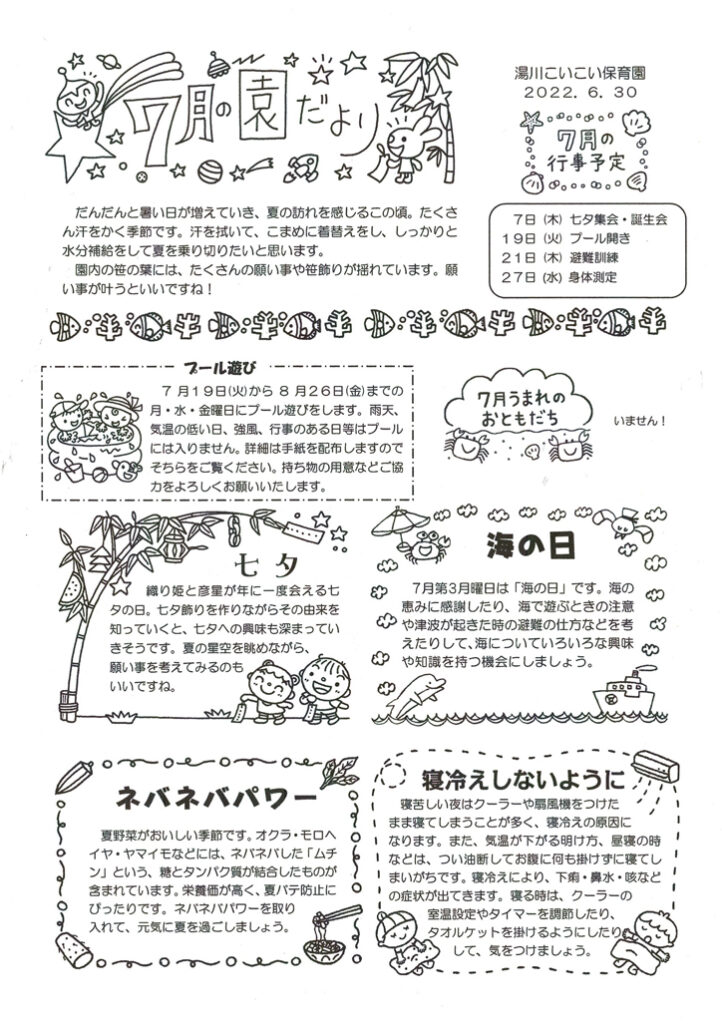 7月の園だより
湯川こいこい保育園
2022. 6. 30
7月の
行事予定
だんだんと暑い日が増えていき、夏の訪れを感じるこの頃。たくさ
ん汗をかく季節です。汗を拭いて、こまめに着替えをし、しっかりと
水分補給をして夏を乗り切りたいと思います。
園内の笹の葉には、たくさんの願い事や笹飾りが揺れています。願
い事が叶うといいですね！
7日 (木) 七夕集会・誕生会
19日 (火) プール開き
21日 (木) 避難訓練
27日 (水) 身体測定
プール遊び
7月19日(火)から8月26日(金)までの
月・水・金曜日にプール遊びをします。雨天、
気温の低い日、強風、行事のある日等はプール
には入りません。詳細は手紙を配布しますので
そちらをご覧ください。持ち物の用意などご協
力をよろしくお願いいたします。
7月うまれの
おともだち
いません！
七夕
織り姫と彦星が年に一度会える七
夕の日。七夕飾りを作りながらその由来を
知っていくと、七夕への興味も深まってい
きそうです。夏の星空を眺めながら、
願い事を考えてみるのも
いいですね。
海の日
7月第3月曜日は「海の日」です。海の
恵みに感謝したり、海で遊ぶときの注意
や津波が起きた時の避難の仕方などを考
えたりして、海についていろいろな興味
や知識を持つ機会にしましょう。
ネバネバパワー
夏野菜がおいしい季節です。オクラ・モロヘ
イヤ・ヤマイモなどには、ネバネバした「ムチ
ン」という、糖とタンパク質が結合したものが
含まれています。栄養価が高く、夏バテ防止に
ぴったりです。ネバネバパワーを取り
入れて、元気に夏を過ごしましょう。
寝冷えしないように
寝苦しい夜はクーラーや扇風機をつけた
まま寝てしまうことが多く、寝冷えの原因に
なります。また、気温が下がる明け方、昼寝の時
などは、つい油断してお腹に何も掛けずに寝てし
まいがちです。寝冷えにより、下痢・鼻水・咳など
の症状が出てきます。寝る時は、クーラーの
室温設定やタイマーを調節したり、
タオルケットを掛けるようにしたり
して、気をつけましょう。